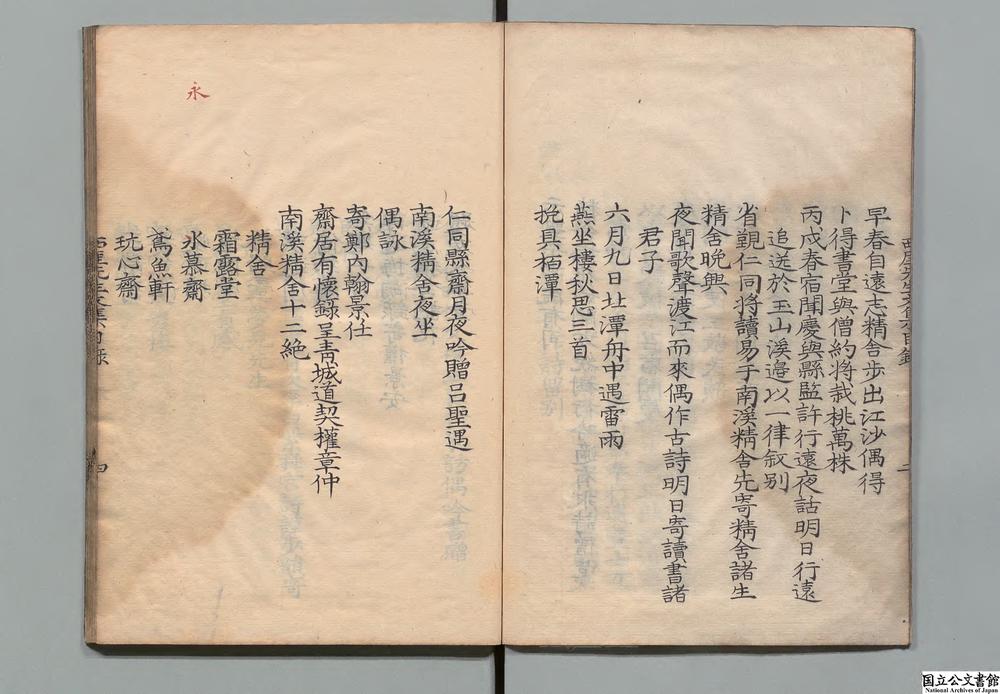 早春自遠志精舍步出江沙偶得
卜得書堂與僧約將栽桃萬株
丙戍春宿聞慶與縣監許行遠夜話明日行遠
追送於玉山溪邉以一律叙别
省覲仁同將讀易于南溪精舍先寄精舍諸生
精舍晚興
夜聞歌聲渡江而來偶作古詩明日寄讀書諸
君子
六月九日北潭舟中遇雷雨
燕坐樓秋思三首
挽具栢潭
仁同縣齋月夜吟贈呂聖遇
南溪精舍夜坐
偶詠
寄鄭內翰景任
齋居有懷録呈靑城道契權章仲
南溪精舍十二絶
精舍
霜露堂
永慕齋
鳶魚軒
玩心齋
四
永
国立公文書館
National Archives of Japan